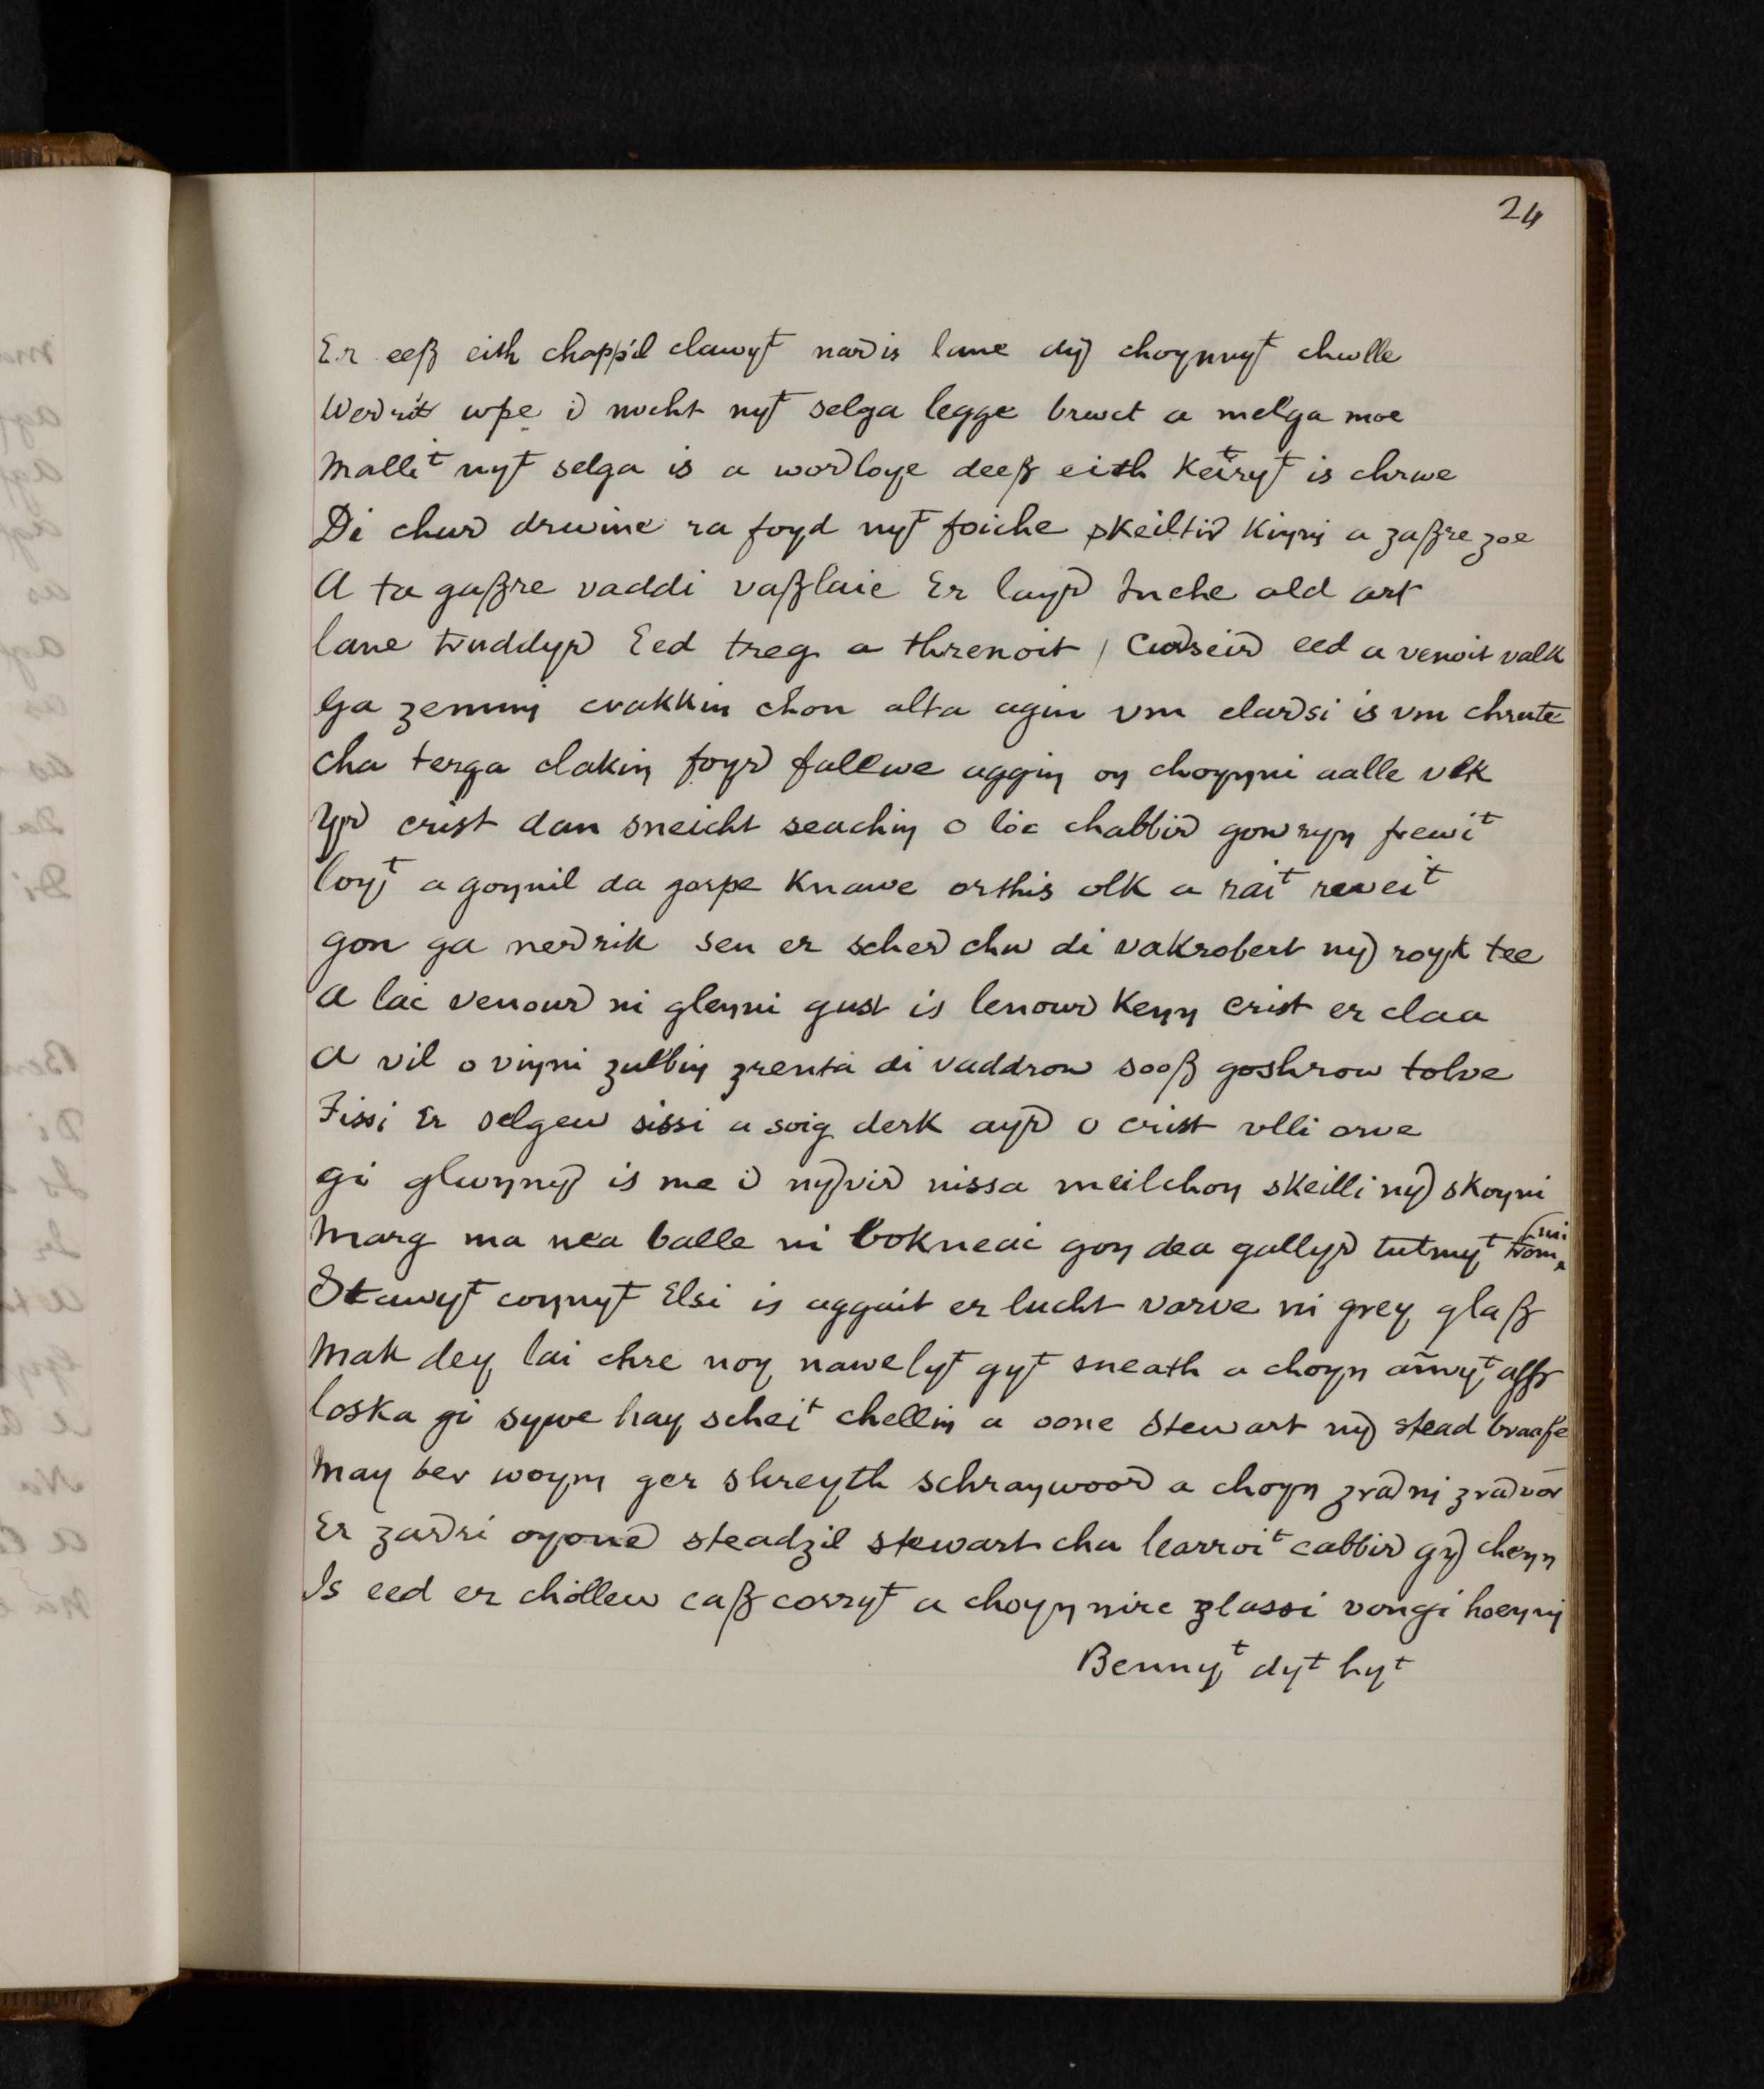 24
Er eeß eith chappil clawyt nardis lane dyr choynnyt chwlle
Werdrit wpe ir nocht nyt selga legge brwct a melga moe
Mallit nyt selga is a wordloye deeß eith Keitryt is chrwe
Di chur drwine ra foyd nyt foiche skeiltir Kinnj a zaßre zoe
A ta gaßre vaddi vaßlaie Er layr tuche ald art
lane truddyr Eed treg a threnoit / Curseir eed a venoit valk
ga zemmj crakkin chon alta agin vm clarsi is vm chrute
cha terga clakin foyr fallwe aggin on choynni aalle vlk
Yr crist dan sneicht seachin o loc chabbir gowryn frewit
loyt a goynil da gorpe Knawe orthis olk a rait reveit
gon ga nerrik sen er scher chw di vakrobert nyr royk tee
A lac venour ni glenni gust is lenour Kenn crist er claa
A vil o vinni zulbin zrenta di vaddrow sooß goshrow tolve
Fissi Er selgew sissi a soig derk ayr o crist vlli orve
gi glwynyr is me ir nyrvir nissa meilchon skeilli nyr skoyni
Marg ma nea balle ni bokneac gon dea gallyr tutmyt trom ni
Stawyt connyt Elsi is aggait er lucht varve ni grey glaß
Mak dey lai chre noy nawelyt gyt sneath a choyn amwyt aßr
loska gi sywe hay scheit chellin a oone Stewart nyr stead braaße
May ber woym ger shreyth schraywoor a choyn zrarnj zrarvor
Er zarri oyoner steadzil stewart cha learroit cabbir gyr chenn
Is eed er chollew caß corryt a choyn nirc zlassi vongi hoennj
Bennyt dyt hyt